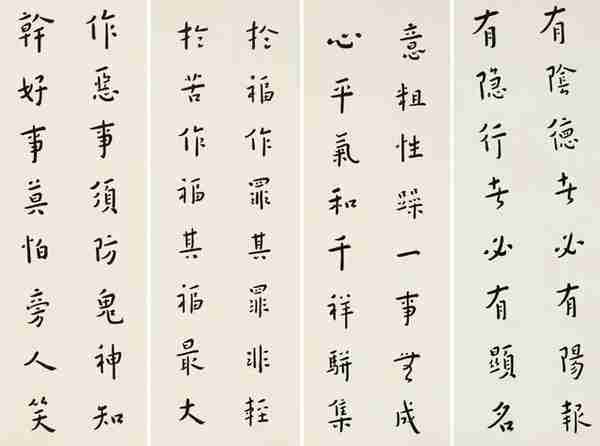 有陰德者必有陽報
有隐行者必有顯名
意粗性躁一事無成
心平氣和千祥駢集
於福作罪其罪非輕
於苦作福其福最大
作惡事須防鬼神知
幹好事莫怕旁人笑